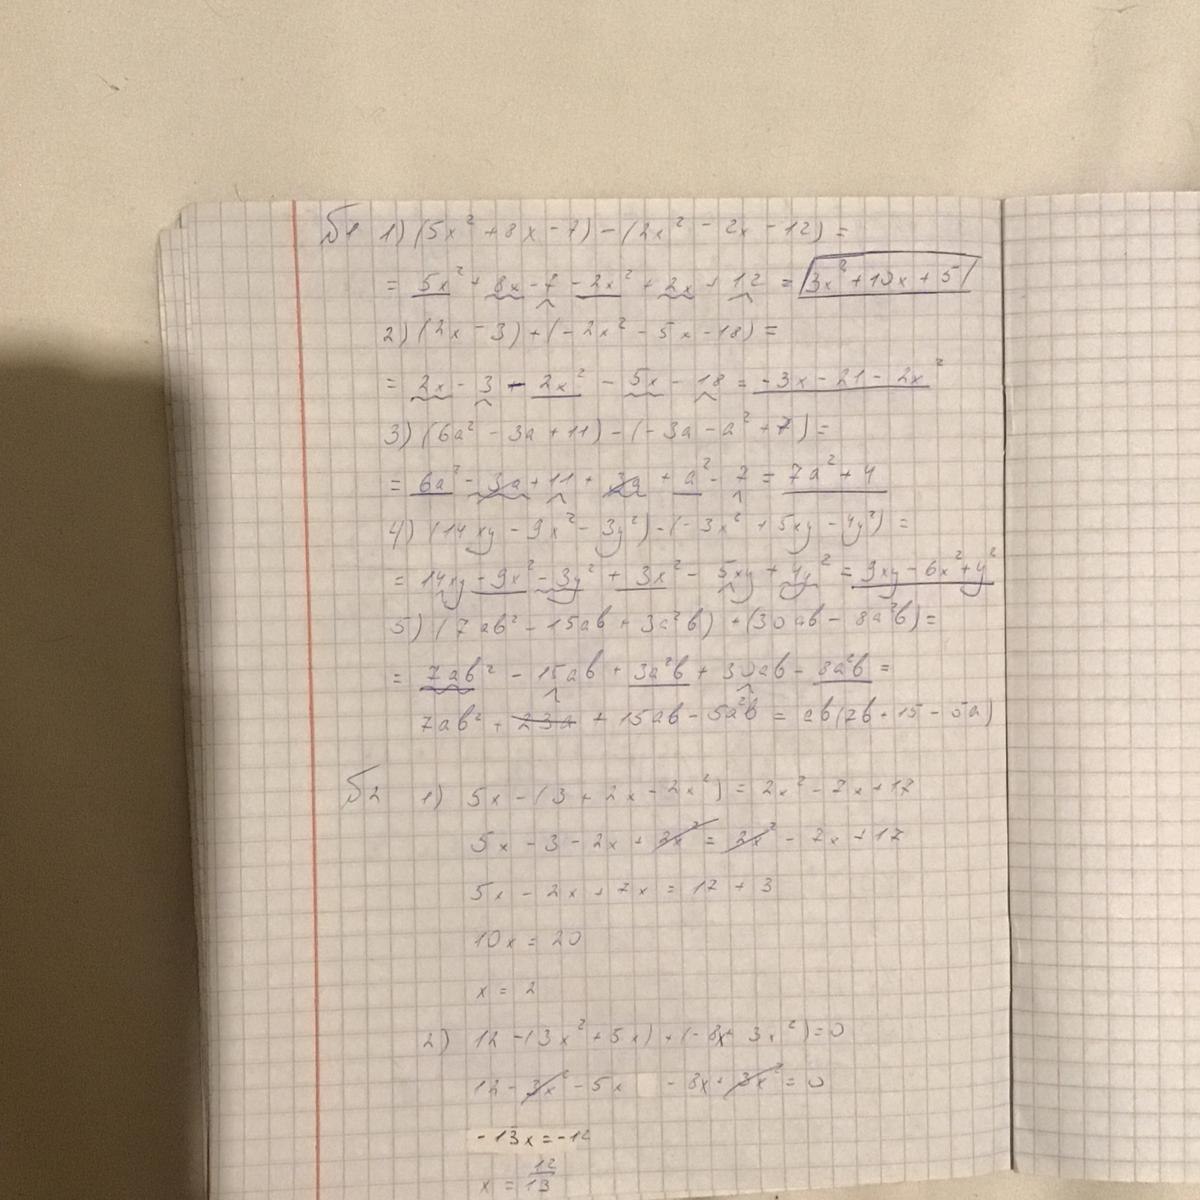 Б1 1) (5x² + 8x - 7) - (2x² - 2x - 12) =
= 5x² + 8x - 7 - 2x² + 2x + 12 = 3x² + 10x + 5
2) (2x - 3) + (-2x² - 5x - 18) =
= 2x - 3 - 2x² - 5x - 18 = -3x - 21 - 2x²
3) (6a² - 3a + 11) - (-3a - a² + 7) =
= 6a² - 3a + 11 + 3a + a² - 7 = 7a² + 4
4) (14xy - 9x² - 3y²) - (-3x² + 5xy - 4y²) =
= 14xy - 9x² - 3y² + 3x² - 5xy + 4y² = 9xy - 6x² + y²
5) (7ab² - 15ab + 3a²b) + (30ab - 8a²b) =
= 7ab² - 15ab + 3a²b + 30ab - 8a²b =
7ab² + 15ab - 5a²b = ab(7b + 15 - 5a)
Б2 1) 5x - (3 + 2x - 2x²) = 2x² - 7x + 17
5x - 3 - 2x + 2x² = 2x² - 7x + 17
5x - 2x + 7x = 17 + 3
10x = 20
x = 2
2) 12 - (3x² + 5x) + (-8x + 3x²) = 0
12 - 3x² - 5x - 8x + 3x² = 0
-13x = -12
x = 12/13